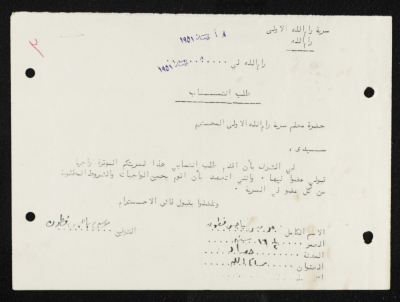 سرية رام الله الاولى
رام الله
٨ ١٩٥١
رام الله في ١٩٥١
طلب انتساب
حضرة معلم سرية رام الله الاولى المحترم
سيدي ،
لي الشرف بأن اقدم طلب انتسابي هذا لسريتكم الموقرة راجيا
قبولي عضوا فيها ، وانني اتعهد بأن اقوم بجميع الواجبات والشروط المطلوبة
من كل عضو في السرية .
وتفضلوا بقبول فائق الاحترام
الاسم الكامل
التوقيع
العمر ١٦
المهنة
العنوان رام الله